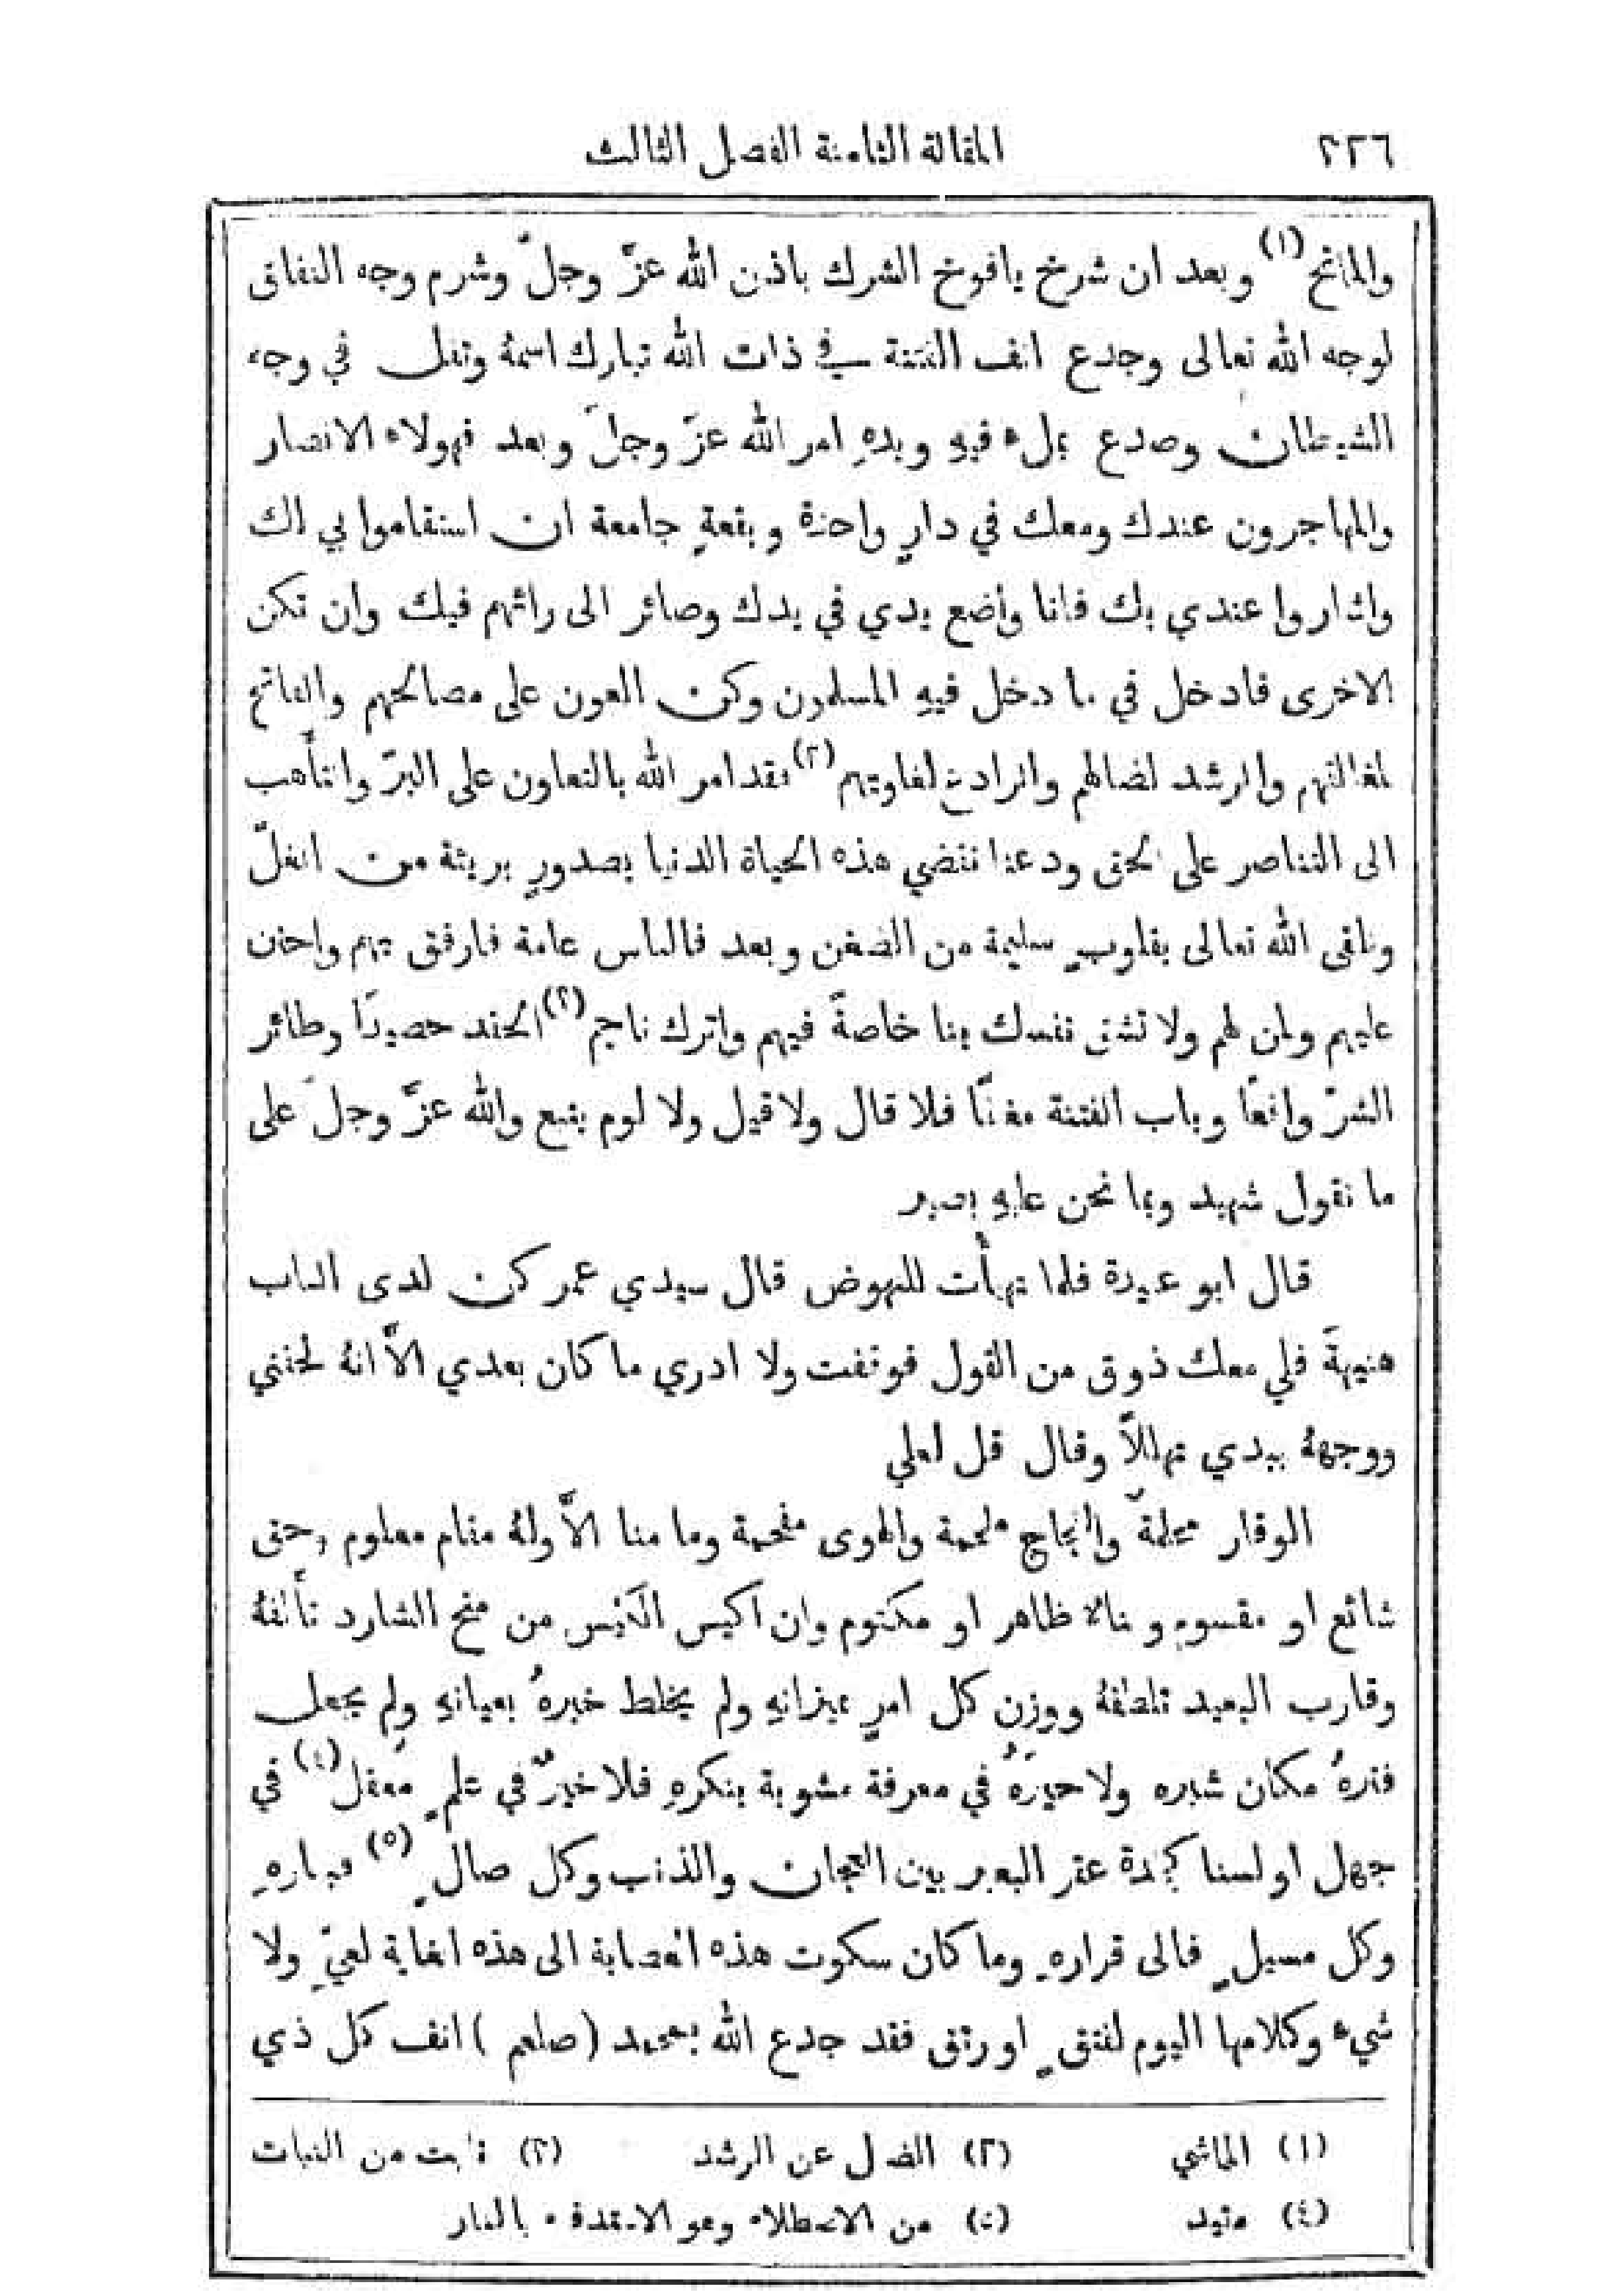 ٢٢٦ المقالة الثامنة الفصل الثالث
والماتح (١) وبعد ان شرخ يافوخ الشرك باذن الله عزَّ وجلَّ وشرم وجه النفاق
لوجه الله تعالى وجدع انف الفتنة في ذات الله تبارك اسمهُ وتفل في وجه
الشيطان وصدع بملء فيهِ ويدهِ امر الله عزَّ وجلَّ وبعد فهولاء الانصار
والمهاجرون عندك ومعك في دارٍ واحدة وبقعةٍ جامعة ان استقاموا بي لك
واشاروا عندي بك فانا واضع يدي في يدك وصائر الى رائهم فيك وان تكن
الاخرى فادخل في ما دخل فيهِ المسلمون وكن العون على مصالحهم والفاتح
لمغالقهم والمرشد لضالهم والرادع لغاويهم (٢) فقد امر الله بالتعاون على البرّ والتأهب
الى التناصر على الحق ودعنا نقضي هذه الحياة الدنيا بصدورٍ بريئة من الغلّ
ونلقى الله تعالى بقلوبٍ سليمة من الضغن وبعد فالناس عامة فارفق بهم واحن
عليهم ولن لهم ولا تشق نفسك بنا خاصةً فيهم واترك ناجم (٣) الحقد حصيدًا وطائر
الشرّ واقعًا وباب الفتنة مغلقًا فلا قال ولا قيل ولا لوم يتبع والله عزَّ وجلَّ على
ما نقول شهيد وبما نحن عليهِ بصير
قال ابو عبيدة فلما تهيأت للنهوض قال سيدي عمر كن لدى الباب
هنيهةً فلي معك ذوق من القول فوقفت ولا ادري ما كان بعدي الاَّ انهُ لحقني
ووجههُ يبدي تهللاً وقال قل لعلي
الوقار محلمة والجاج ملحمة والهوى مقحمة وما منا الاَّ ولهُ مقام معلوم وحق
شائع او مقسوم ظاهر او مكتوم وان اكيس الكيس من منح الشارد تألفهُ
وقارب البعيد تلطفهُ ووزن كل امرٍ بميزانهِ ولم يخلط خبرهُ بعيانهِ ولم يجعل
فترهُ مكان شبره ولا خيرهُ في معرفة مشوبة بنكرهِ فلا خيرٌ في علمٍ معقل (٤) في
جهل اولسنا كجلدة عقر البعير بين العجان والذنب وكل صالٍ (٥) فبنارهِ
وكل مسيلٍ فالى قرارهِ وما كان سكوت هذه العصابة الى هذه الغاية لعيٍّ ولا
شيء وكلامها اليوم لفتقٍ او رتق فقد جدع الله بمحمد (صلعم) انف كل ذي
(١) الماشي (٢) الضال عن الرشد (٣) نابت من النبات
(٤) مقيد (٥) من الاصطلاء وهو الاستدفاء بالنار